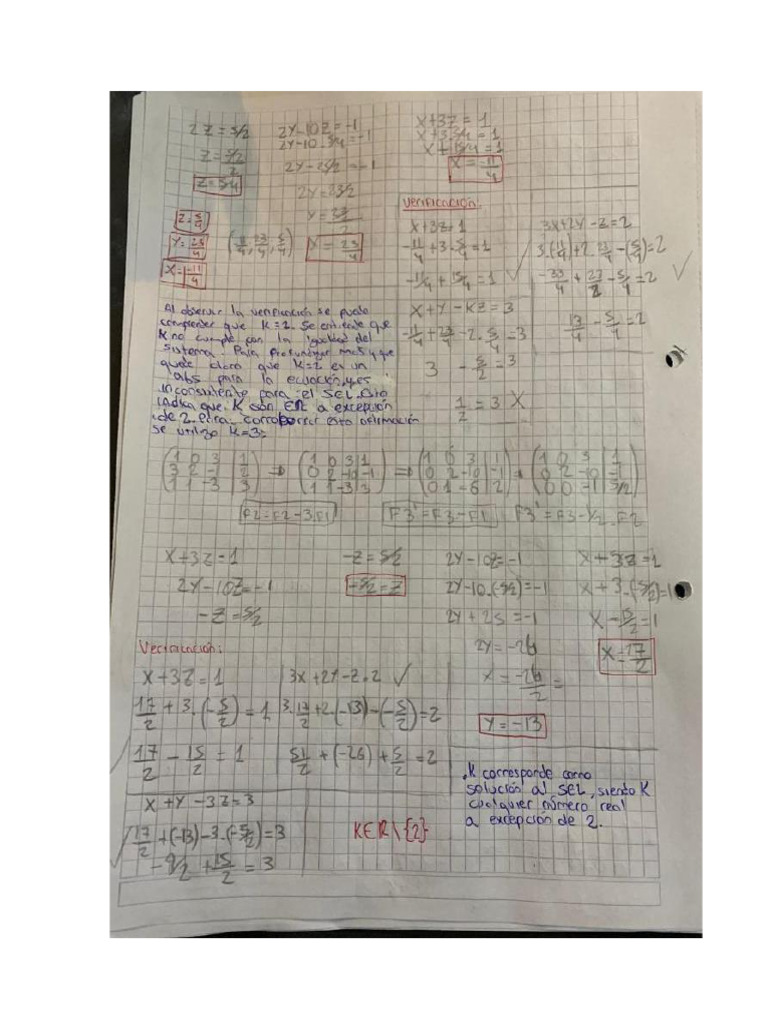 2Z = 5/2
Z = 5/2 / 2
Z = 5/4
2Y-10Z = -1
2Y-10·5/4 = -1
2Y-25/2 = -1
2Y = 23/2
Y = 23/2 / 2
Y = 23/4
X+3Z = 1
X+3·5/4 = 1
X+15/4 = 1
X = -11/4
Z = 5/4
Y = 23/4
X = -11/4
(11/4, 23/4, 5/4)
Verificación:
X+3Z=1
-11/4 + 3·5/4 = 1
-11/4 + 15/4 = 1 ✓
3X+2Y-Z=2
3·(11/4)+2·23/4-(5/4)=2
-33/4 + 23/2 - 5/4 = 2 ✓
13/4 - 5/4 = 2
X+Y-KZ=3
-11/4 + 23/4 - 2·5/4 = 3
3 - 5/2 = 3
1/2 = 3 X
Al observar la verificación se puede
comprender que K=2. Se entiende que
K no cumple con la igualdad del
sistema. Para profundizar mas y que
quede claro que K=2 es un
abs para la ecuación, y es
inconsistente para el SEL. Esto
indica que K son ER a excepción
de 2. Para corroborar esta afirmación
se utilizo K=3:
(1 0 3 | 1
3 2 -1 | 2
1 1 -3 | 3) ⇒ (1 0 3 | 1
0 2 -10 | -1
1 1 -3 | 3) ⇒ (1 0 3 | 1
0 2 -10 | -1
0 1 -6 | 2) ⇒ (1 0 3 | 1
0 2 -10 | -1
0 0 -1 | 5/2)
F2=F2-3.F1
F3'=F3-F1
F3'=F3-1/2.F2
X+3Z=1
2Y-10Z=-1
-Z=5/2
-Z=5/2
-5/2=Z
2Y-10Z=-1
2Y-10·(-5/2)=-1
2Y+25=-1
2Y=-26
X=-26/2=
Y=-13
X+3Z=1
X+3·(-5/2)=1
X-15/2=1
X=17/2
Verificación:
X+3Z=1
17/2 + 3·(-5/2) = 1
17/2 - 15/2 = 1
3X+2Y-Z=2 ✓
3·17/2+2·(-13)-(-5/2)=2
51/2 + (-26) + 5/2 = 2
X+Y-3Z=3
17/2+(-13)-3·(-5/2)=3
-9/2 + 15/2 = 3
KER\{2}
.K corresponde como
solución al SEL, siento K
cualquier número real
a excepción de 2.